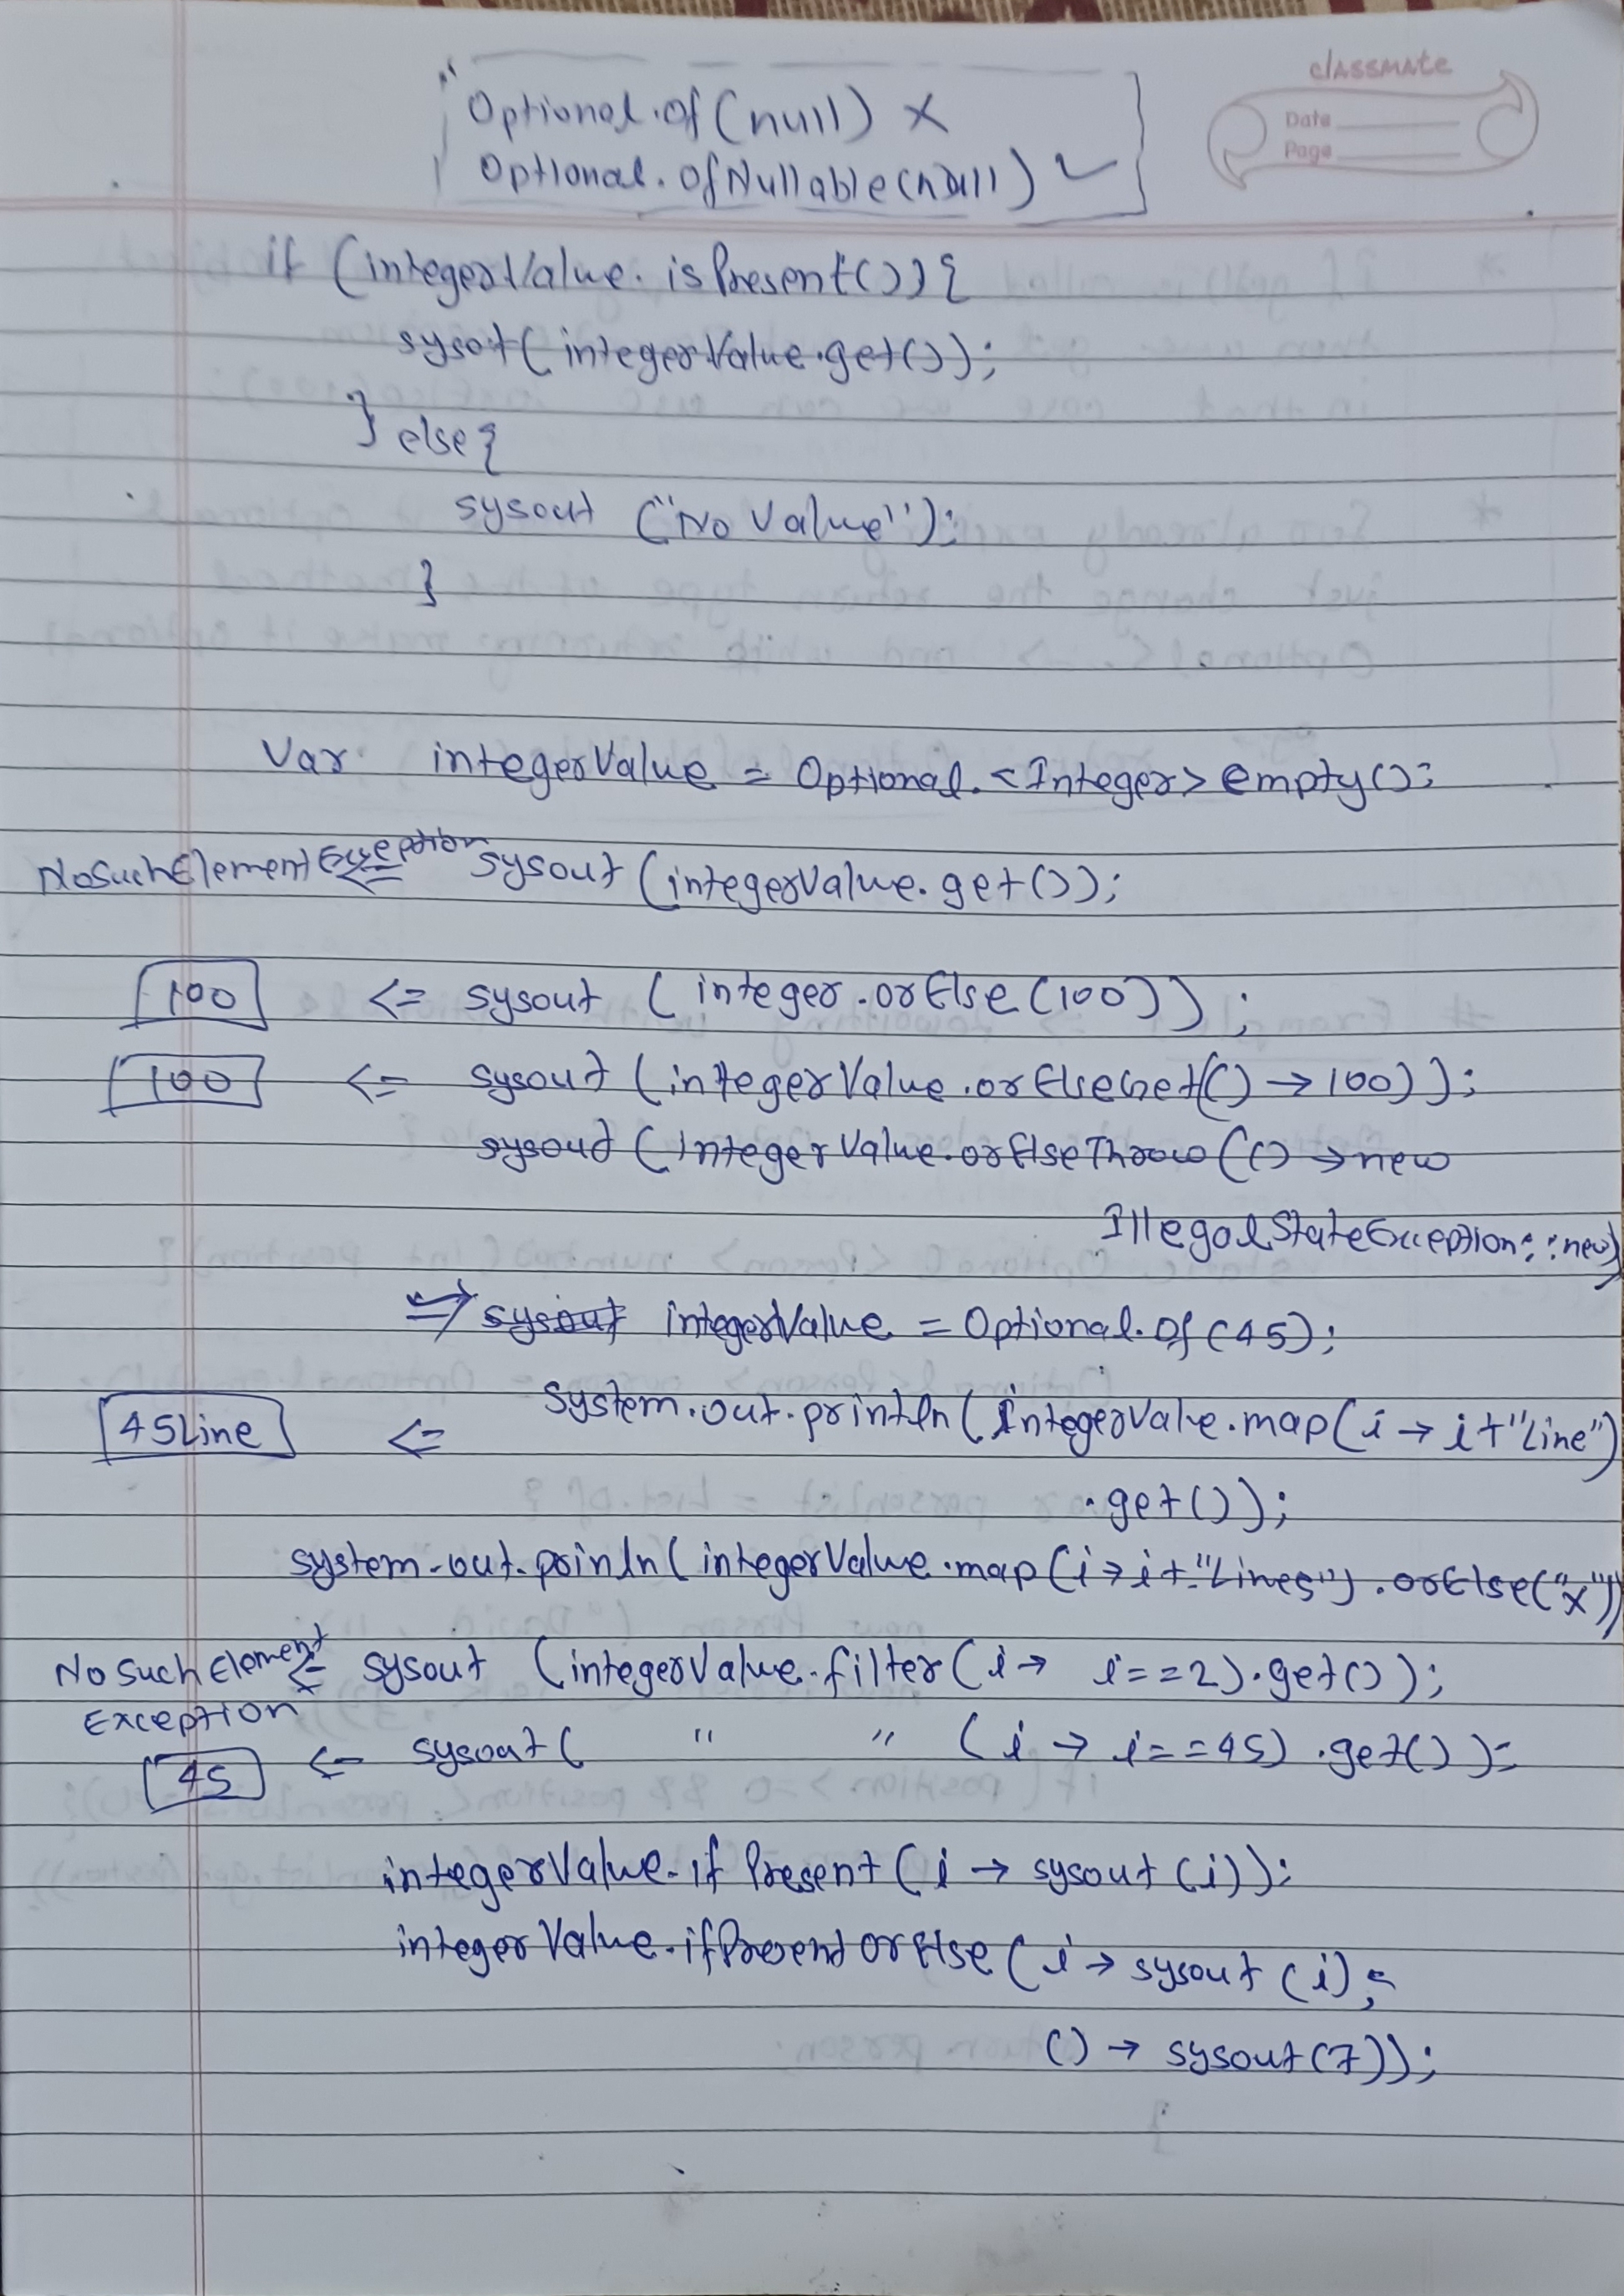 classmate
Date
Page
"Optional.of(null) X
Optional.ofNullable(null) ✓
if (integerValue.isPresent()){
sysout(integerValue.get());
} else{
sysout ("No Value");
}
Var integerValue = Optional.<Integer>empty();
NoSuchElementException <= sysout(integerValue.get());
100 <= sysout (integer.orElse(100));
100 <= sysout (integerValue.orElseGet(() → 100));
sysout (integerValue.orElseThrow(() → new
IllegalStateException::new)
=> integerValue = Optional.of(45);
45Line <= System.out.println(integerValue.map(i → i+"Line")
.get());
system.out.prinln(integerValue.map(i→i+"Lines").orElse("x"))
NoSuchElement <= sysout (integerValue.filter(i → i==2).get());
Exception
45 <= sysout( " " (i → i==45).get());
integerValue.ifPresent(i → sysout(i));
integerValue.ifPresentorElse(i → sysout(i);
() → sysout(7));